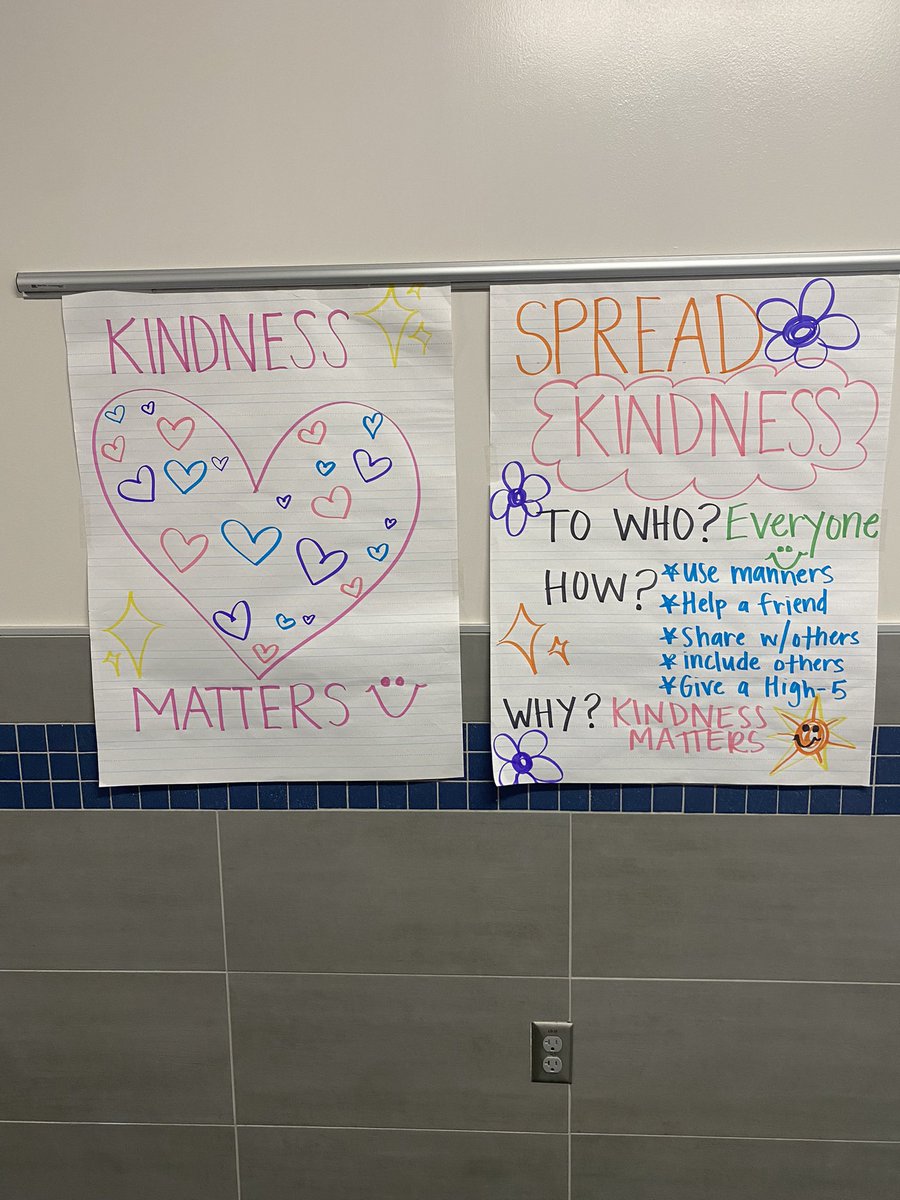 KINDNESS
MATTERS
SPREAD
KINDNESS
TO WHO? Everyone
HOW? *use manners
*Help a friend
*Share w/others
*include others
*Give a High-5
WHY? KINDNESS
MATTERS